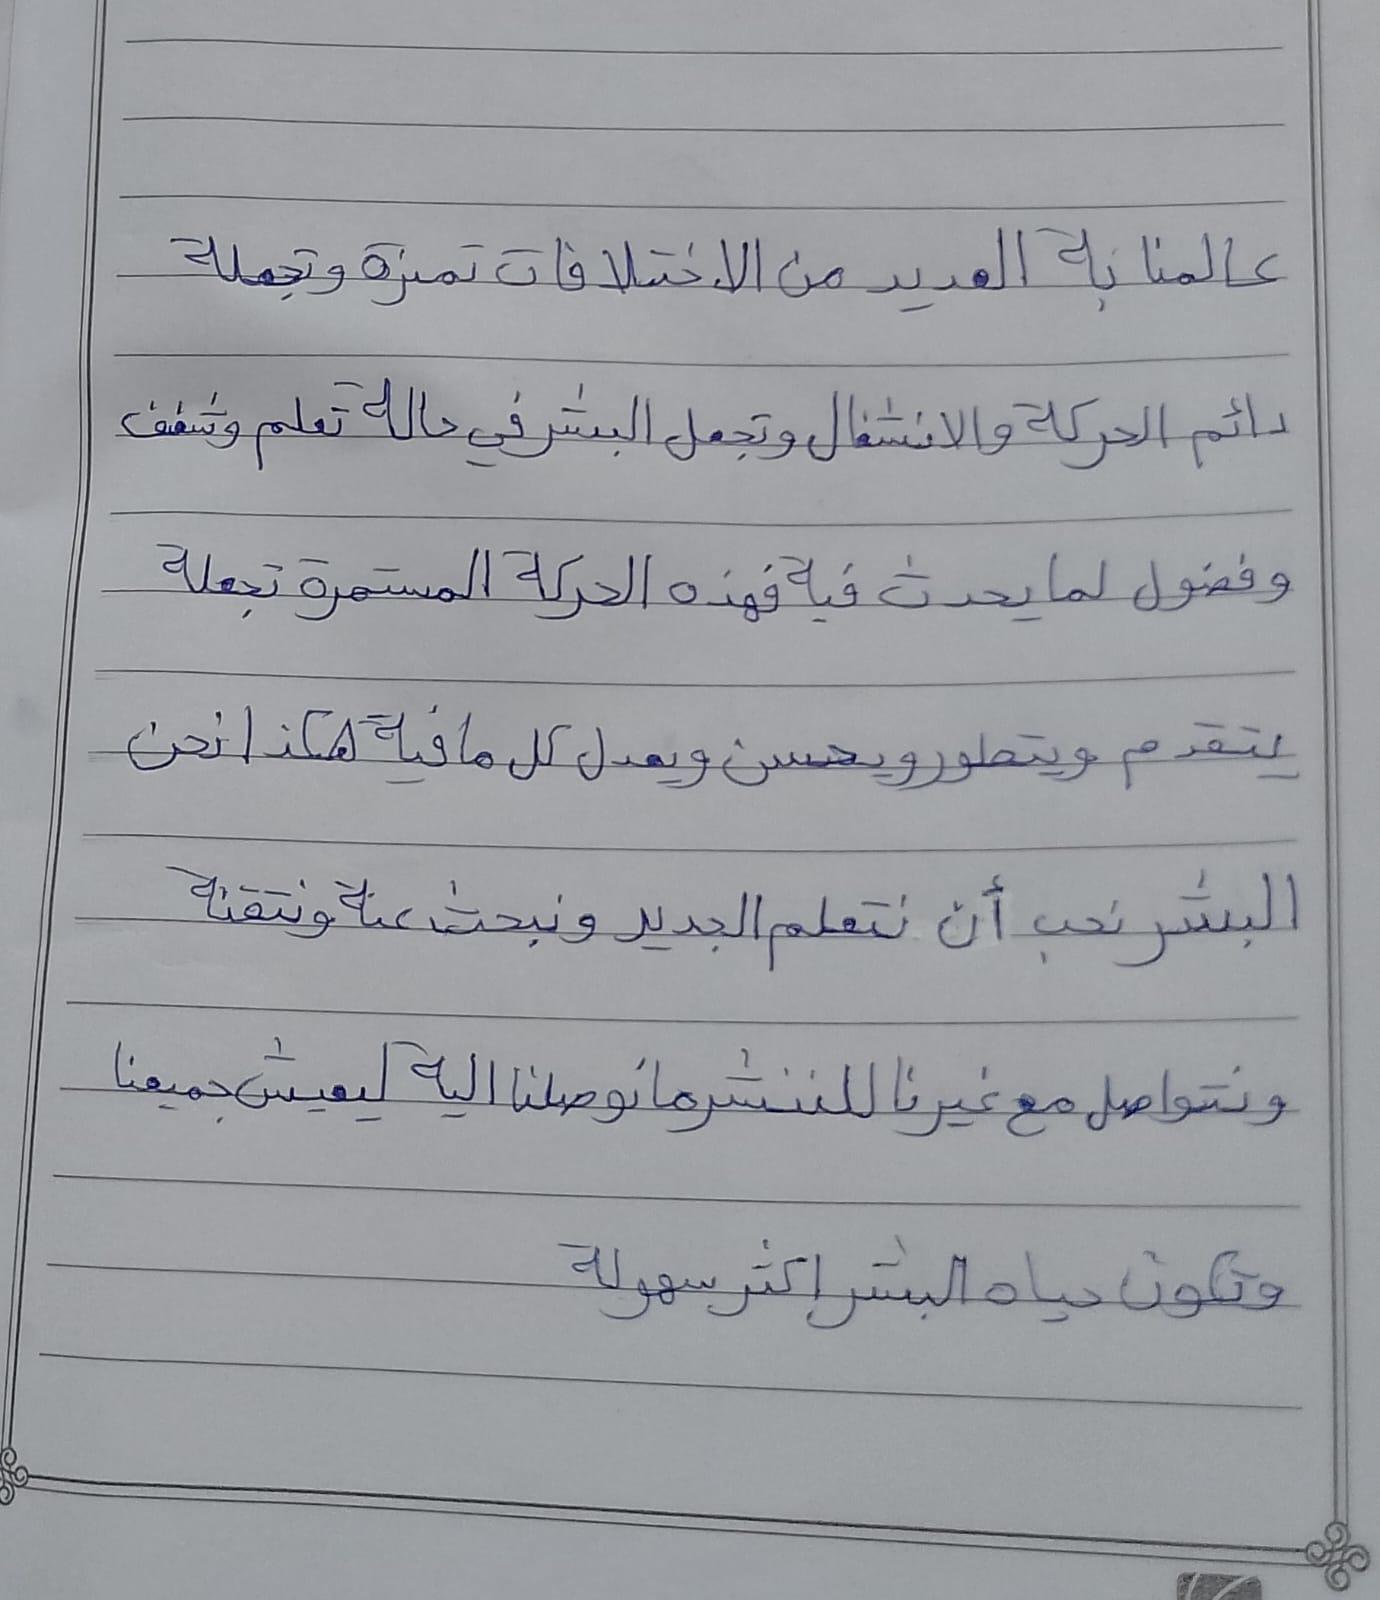 عالمنا بة العديد من الاختلافات تميزة وتجعلة
دائم الحركة والانشغال وتجعل البشر في حالة تعلم وشغف
وفضول لما يحدث فية فهذه الحركة المستمرة تجعلة
يتقدم ويتطور ويحسن ويعدل كل ما فية هكذا نحن
البشر نحب أن نتعلم الجديد ونبحث عنة ونتقنة
ونتواصل مع غيرنا للننشر ما توصلنا الية ليعيش جميعنا
وتكون حياه البشر اكثر سهولة